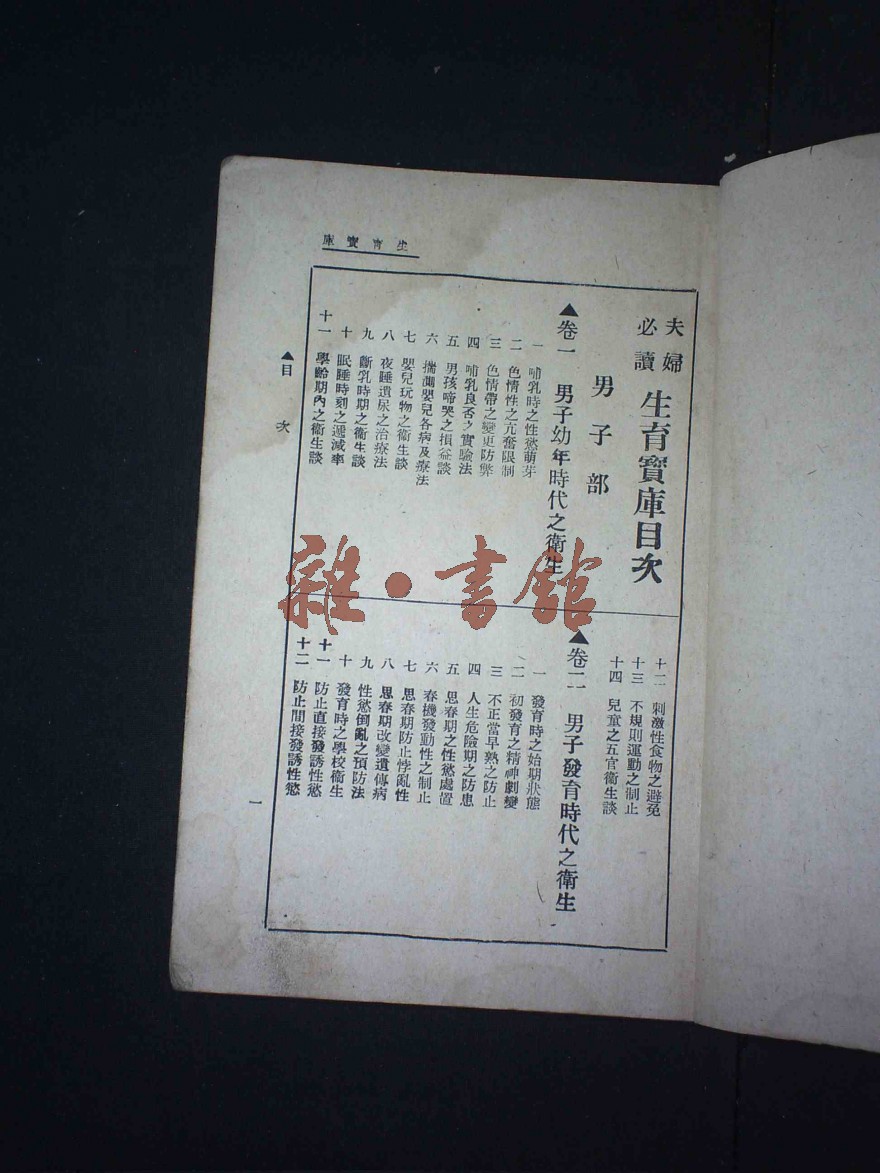 生育寶庫
夫婦必讀 生育寶庫目次
男子部
▲卷一 男子幼年時代之衛生
一 哺乳時之性慾萌芽
二 色情性之亢奮限制
三 色情帶之變更防弊
四 哺乳良否之實驗法
五 男孩啼哭之損益談
六 揣測嬰兒各病及療法
七 嬰兒玩物之衞生談
八 夜睡遺尿之治療法
九 斷乳時期之衞生談
十 眠睡時刻之遞減率
十一 學齡期內之衞生談
十二 刺激性食物之避免
十三 不規則運動之制止
十四 兒童之五官衞生談
▲卷二 男子發育時代之衛生
一 發育時之始期狀態
二 初發育之精神劇變
三 不正當早熟之防止
四 人生危險期之防患
五 思春期之性慾處置
六 春機發動性之制止
七 思春期防止悖亂性
八 思春期改變遺傳病
九 性慾倒亂之預防法
十 發育時之學校衞生
十一 防止直接發誘性慾
十二 防止間接發誘性慾
▲目次
一
雜·書館